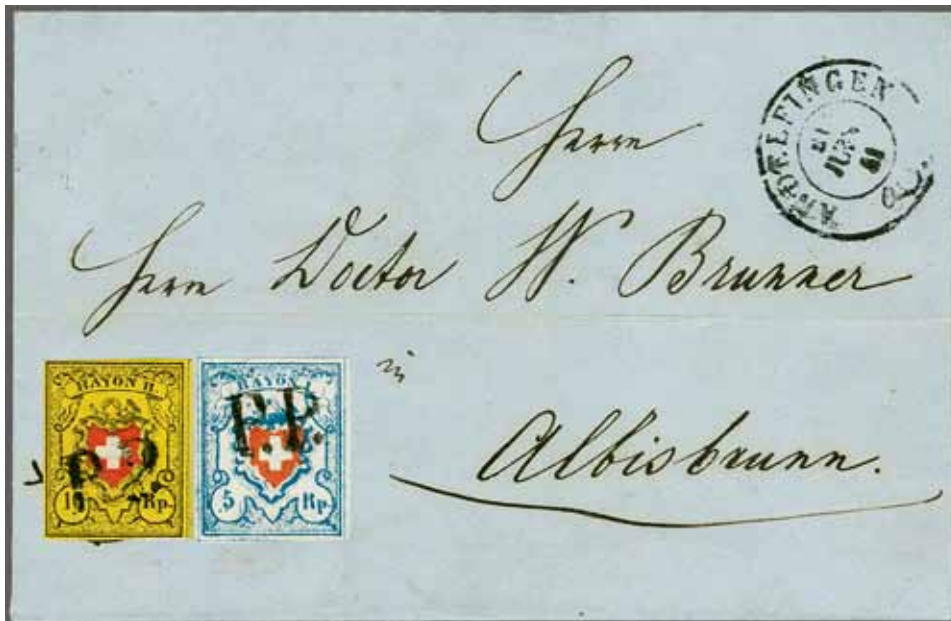 Herrn
Herrn Doctor W. Brunner
in
Albisbrunn.
ANDELFINGEN
21
JUNI
51
RAYON II.
P.P.
10 Rp.
RAYON I.
P.P.
5 Rp.